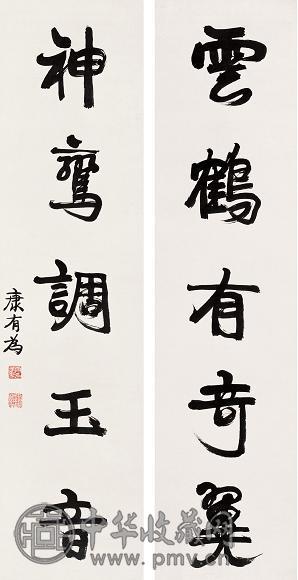 雲鶴有奇翼
神鸞調玉音
康有為
中华收藏网
www.pmv.cn